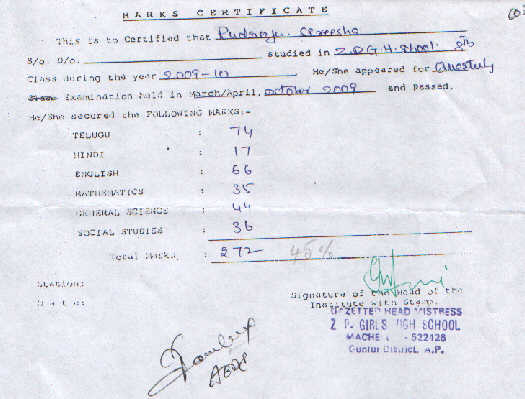 MARKS CERTIFICATE
This is to Certified that Pudraju Sireesha
S/o D/o. studied in Z.P.G.H. School. 8th
Class during the year 2009-10 He/She appeared for Quarterly
Examination held in March/April, October 2009 and passed.
He/She secured the FOLLOWING MARKS:-
TELUGU : 74
HINDI : 17
ENGLISH : 66
MATHEMATICS : 35
GENERAL SCIENCE : 44
SOCIAL STUDIES : 36
Total Marks, : 272- 45%
Station:
Date:
Signature of the Head of the
Institute with Stamp.
GAZETTED HEAD MISTRESS
Z. P. GIRLS HIGH SCHOOL
MACHE - 522426
Guntur District, A.P.